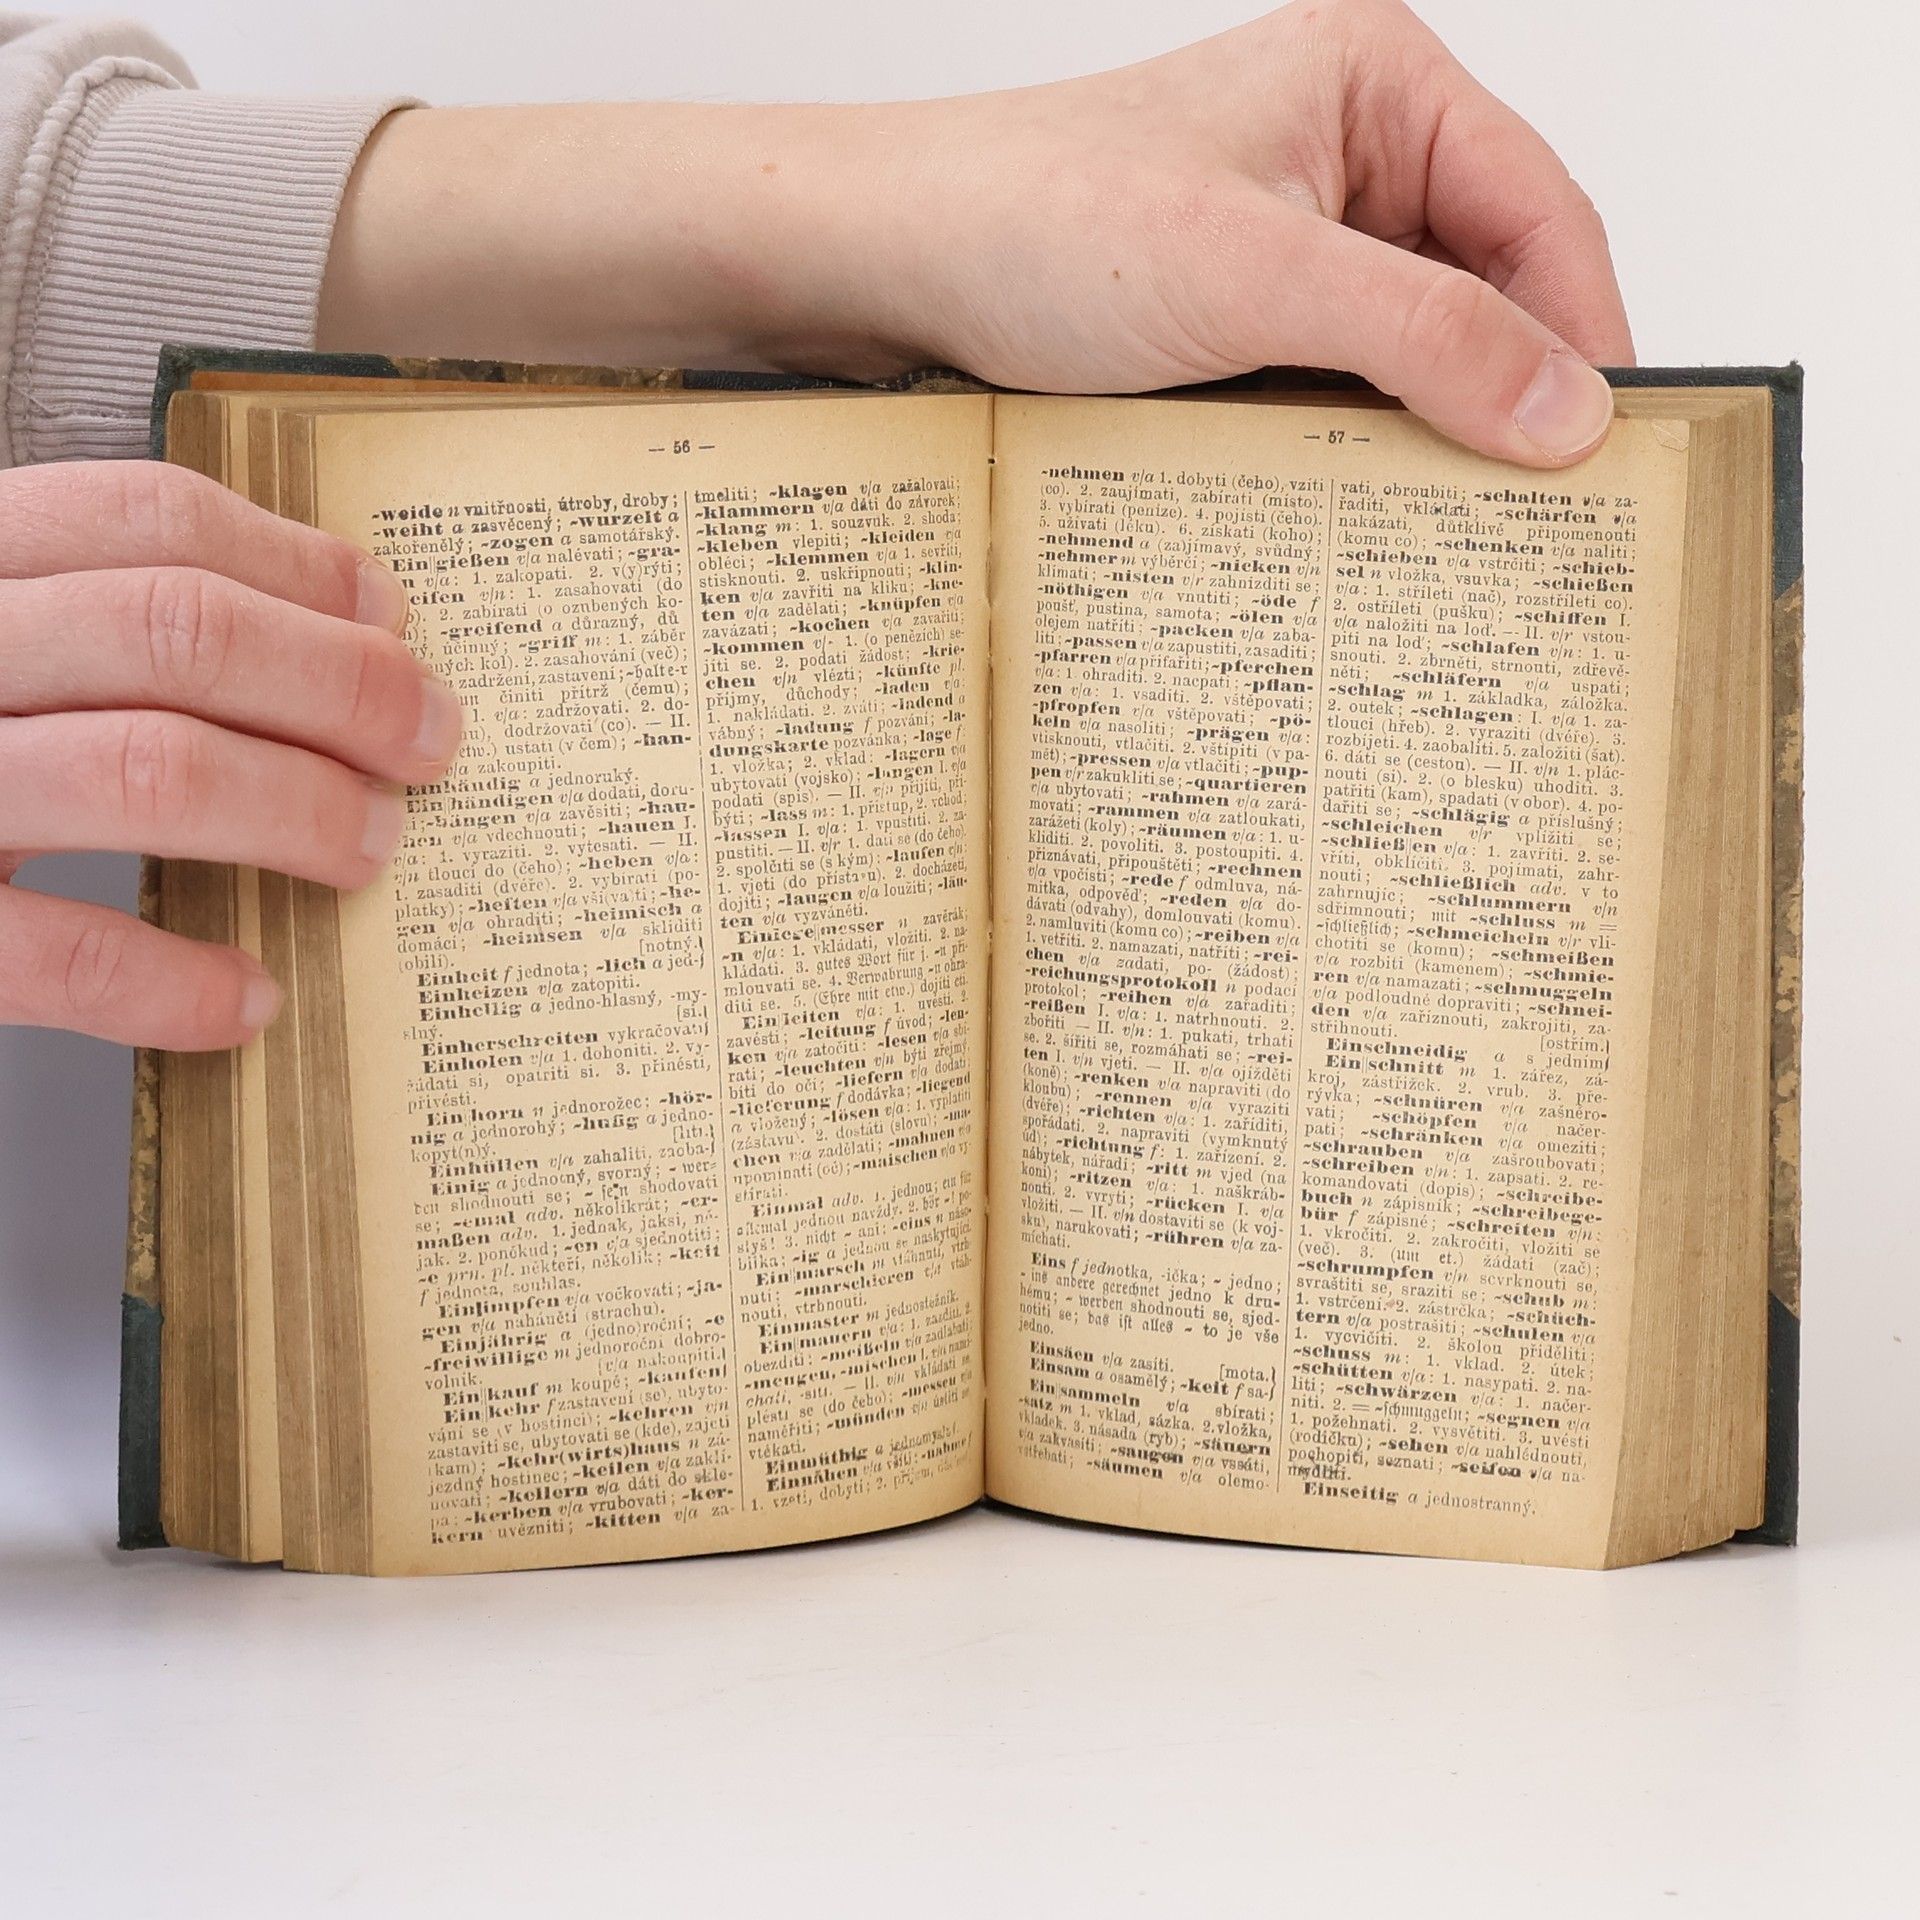 — 56 —
~weide n vnitřnosti, útroby, droby;
~weiht a zasvěcený; ~wurzelt a
zakořenělý; ~zogen a samotářský.
Ein||gießen v/a nalévati; ~gra-
v/a: 1. zakopati. 2. v(y)rýti;
v/n: 1. zasahovati (do
2. zabírati (o ozubených ko-
~greifend a důrazný, dů
účinný; ~griff m: 1. záběr
kol). 2. zasahování (več);
zadržení, zastavení; ~halte-r
činiti přítrž (čemu);
1. v/a: zadržovati. 2. do-
dodržovati (co). — II.
ustati (v čem); ~han-
v/a zakoupiti.
Einhändig a jednoruký.
Ein||händigen v/a dodati, doru-
~hängen v/a zavěsiti; ~hau-
chen v/a vdechnouti; ~hauen I.
v/a: 1. vyraziti. 2. vytesati. — II.
v/n tlouci do (čeho); ~heben v/a:
1. zasaditi (dvéře). 2. vybírati (po-
platky); ~heften v/a vší(va)ti; ~he-
gen v/a ohraditi; ~heimisch a
domácí; ~heimsen v/a skliditi
(obilí). [notný.}
Einheit f jednota; ~lich a jed-}
Einheizen v/a zatopiti.
Einhellig a jedno-hlasný, -my-
slný. [si.}
Einherschreiten vykračovati}
Einholen v/a 1. dohoniti. 2. vy-
žádati si, opatřiti si. 3. přinésti,
přivésti.
Ein||horn n jednorožec; ~hör-
nig a jednorohý; ~hufig a jedno-
kopyt(n)ý. [liti.}
Einhüllen v/a zahaliti, zaoba-}
Einig a jednotný, svorný; ~ wer-
den shodnouti se; ~ sein shodovati
se; ~emal adv. několikrát; ~er-
maßen adv. 1. jednak, jaksi, ně-
jak. 2. poněkud; ~en v/a sjednotiti;
~e prn. pl. někteří, několik; ~keit
f jednota, souhlas.
Ein||impfen v/a vočkovati; ~ja-
gen v/a naháněti (strachu).
Einjährig a (jedno)roční; ~e
~freiwillige m jednoroční dobro-
volník. [v/a nakoupiti.}
Ein||kauf m koupě; ~kaufen}
Ein||kehr f zastavení (se), ubyto-
vání se (v hostinci); ~kehren v/n
zastaviti se, ubytovati se (kde), zajeti
(kam); ~kehr(wirts)haus n zá-
jezdný hostinec; ~keilen v/a zaklí-
novati; ~kellern v/a dáti do skle-
pa; ~kerben v/a vrubovati; ~ker-
kern uvězniti; ~kitten v/a za-
tmeliti; ~klagen v/a zažalovati;
~klammern v/a dáti do závorek;
~klang m: 1. souzvuk. 2. shoda;
~kleben vlepiti; ~kleiden v/a
obléci; ~klemmen v/a 1. sevříti,
stisknouti. 2. uskřipnouti; ~klin-
ken v/a zavříti na kliku; ~kne-
ten v/a zadělati; ~knüpfen v/a
zavázati; ~kochen v/a zavařiti;
~kommen v/- 1. (o penězích) se-
jíti se. 2. podati žádost; ~krie-
chen v/n vlézti; ~künfte pl.
příjmy, důchody; ~laden v/a:
1. nakládati. 2. zváti; ~ladend a
vábný; ~ladung f pozvání; ~la-
dungskarte pozvánka; ~lage f:
1. vložka; 2. vklad; ~lagern v/a
ubytovati (vojsko); ~langen I. v/a
podati (spis). — II. v/n přijíti, při-
býti; ~lass m: 1. přístup, 2. vchod;
~lassen I. v/a: 1. vpustiti. 2. za-
pustiti. — II. v/r 1. dáti se (do čeho).
2. spolčiti se (s kým); ~laufen v/n:
1. vjeti (do přístavu). 2. docházeti,
dojíti; ~laugen v/a loužiti; ~läu-
ten v/a vyzváněti.
Einlege||messer n zavěrák;
~n v/a: 1. vkládati, vložiti. 2. na-
kládati. 3. gutes Wort für j. ~n při-
mlouvati se. 4. Verwahrung ~n ohra-
diti se. 5. (Ehre mit etw.) dojíti cti.
Ein||leiten v/a: 1. uvésti. 2.
zavésti; ~leitung f úvod; ~len-
ken v/a zatočiti; ~lesen v/a sbí-
rati; ~leuchten v/n býti zřejmý,
bíti do očí; ~liefern v/a dodati;
~lieferung f dodávka; ~liegend
a vložený; ~lösen v/a: 1. vyplatiti
(zástavu). 2. dostáti (slovu); ~ma-
chen v/a zadělati; ~mahnen v/a
upomínati (oč); ~maischen v/a vy-
stírati.
Einmal adv. 1. jednou; ein für
allemal jednou navždy. 2. hör ~! po-
slyš! 3. nicht ~ ani; ~eins n náso-
bilka; ~ig a jednou se naskytující.
Ein||marsch m vtáhnutí, vtrh-
nutí; ~marschieren v/n vtáh-
nouti, vtrhnouti.
Einmaster m jednostěžník.
Ein||mauern v/a: 1. zazditi. 2.
obezditi; ~meißeln v/a zadlabati;
~mengen, ~mischen I. v/a namí-
chati, -siti. — II. v/n vkládati se,
plésti se (do čeho); ~messen v/a
naměřiti; ~münden v/n ústiti se,
vtékati.
Einmüthig a jednomyslný.
Einnähen v/a všíti; ~nahme f
1. vzetí, dobytí; 2. příjem,
— 57 —
~nehmen v/a 1. dobyti (čeho), vzíti
(co). 2. zaujímati, zabírati (místo).
3. vybírati (peníze). 4. pojísti (čeho).
5. užívati (léku). 6. získati (koho);
~nehmend a (za)jímavý, svůdný;
~nehmer m výběrčí; ~nicken v/n
klímati; ~nisten v/r zahnízditi se;
~nöthigen v/a vnutiti; ~öde f
poušť, pustina, samota; ~ölen v/a
olejem natříti; ~packen v/a zaba-
liti; ~passen v/a zapustiti, zasaditi;
~pfarren v/a přifařiti; ~pferchen
v/a: 1. ohraditi. 2. nacpati; ~pflan-
zen v/a: 1. vsaditi. 2. vštěpovati;
~pfropfen v/a vštěpovati; ~pö-
keln v/a nasoliti; ~prägen v/a:
vtisknouti, vtlačiti. 2. vštípiti (v pa-
mět); ~pressen v/a vtlačiti; ~pup-
pen v/r zakukliti se; ~quartieren
v/a ubytovati; ~rahmen v/a zará-
movati; ~rammen v/a zatloukati,
zarážeti (koly); ~räumen v/a: 1. u-
kliditi. 2. povoliti. 3. postoupiti. 4.
přiznávati, připouštěti; ~rechnen
v/a vpočísti; ~rede f odmluva, ná-
mitka, odpověď; ~reden v/a do-
dávati (odvahy), domlouvati (komu).
2. namluviti (komu co); ~reiben v/a
1. vetříti. 2. namazati, natříti; ~rei-
chen v/a zadati, po- (žádost);
~reichungsprotokoll n podací
protokol; ~reihen v/a zařaditi;
~reißen I. v/a: 1. natrhnouti. 2.
zbořiti — II. v/n: 1. pukati, trhati
se. 2. šířiti se, rozmáhati se; ~rei-
ten I. v/n vjeti. — II. v/a ojížděti
(koně); ~renken v/a napraviti (do
kloubu); ~rennen v/a vyraziti
(dvéře); ~richten v/a: 1. zaříditi,
spořádati. 2. napraviti (vymknutý
úd); ~richtung f: 1. zařízení. 2.
nábytek, nářadí; ~ritt m vjed (na
koni); ~ritzen v/a: 1. naškráb-
nouti. 2. vyrytí; ~rücken I. v/a
vložiti. — II. v/n dostaviti se (k voj-
sku), narukovati; ~rühren v/a za-
míchati.
Eins f jednotka, -ička; ~ jedno;
~ ins andere gerechnet jedno k dru-
hému; ~ werden shodnouti se, sjed-
notiti se; das ist alles ~ to je vše
jedno.
Einsäen v/a zasíti. [mota.}
Einsam a osamělý; ~keit f sa-}
Ein||sammeln v/a sbírati;
~satz m 1. vklad, sázka. 2. vložka,
vkladek. 3. násada (ryb); ~säuern
v/a zakvasiti; ~saugen v/a vssáti,
vstřebati; ~säumen v/a olemo-
vati, obroubiti; ~schalten v/a za-
řaditi, vkládati; ~schärfen v/a
nakázati, důtklivě připomenouti
(komu co); ~schenken v/a naliti;
~schieben v/a vstrčiti; ~schieb-
sel n vložka, vsuvka; ~schießen
v/a: 1. stříleti (nač), rozstříleti co).
2. ostříleti (pušku); ~schiffen I.
v/a naložiti na loď. — II. v/r vstou-
piti na loď; ~schlafen v/n: 1. u-
snouti. 2. zbrněti, strnouti, zdřevě-
něti; ~schläfern v/a uspati;
~schlag m 1. základka, záložka.
2. outek; ~schlagen: I. v/a 1. za-
tlouci (hřeb). 2. vyraziti (dvéře). 3.
rozbíjeti. 4. zaobaliti. 5. založiti (šat).
6. dáti se (cestou). — II. v/n 1. plác-
nouti (si). 2. (o blesku) uhoditi. 3.
patřiti (kam), spadati (v obor). 4. po-
dařiti se; ~schlägig a příslušný;
~schleichen v/r vplížiti se;
~schließ||en v/a: 1. zavříti. 2. se-
vříti, obklíčiti. 3. pojímati, zahr-
nouti; ~schließlich adv. v to
zahrnujíc; ~schlummern v/n
sdřímnouti; mit ~schluss m =
~schließlich; ~schmeicheln v/r vli-
chotiti se (komu); ~schmeißen
v/a rozbiti (kamenem); ~schmie-
ren v/a namazati; ~schmuggeln
v/a podloudně dopraviti; ~schnei-
den v/a zaříznouti, zakrojiti, za-
střihnouti. [ostřím.}
Einschneidig a s jedním}
Ein||schnitt m 1. zářez, zá-
kroj, zástřižek. 2. vrub. 3. pře-
rývka; ~schnüren v/a zašněro-
vati; ~schöpfen v/a načer-
pati; ~schränken v/a omeziti;
~schrauben v/a zašroubovati;
~schreiben v/n: 1. zapsati. 2. re-
komandovati (dopis); ~schreibe-
buch n zápisník; ~schreibege-
bür f zápisné; ~schreiten v/n:
1. vkročiti. 2. zakročiti, vložiti se
(več). 3. (um et.) žádati (zač);
~schrumpfen v/n scvrknouti se,
svraštiti se, sraziti se; ~schub m:
1. vstrčení. 2. zástrčka; ~schüch-
tern v/a postrašiti; ~schulen v/a
1. vycvičiti. 2. školou příděliti;
~schuss m: 1. vklad. 2. útek;
~schütten v/a: 1. nasypati. 2. na-
liti; ~schwärzen v/a: 1. načer-
niti. 2. = ~schmuggeln; ~segnen v/a
1. požehnati. 2. vysvětiti. 3. uvésti
(rodičku); ~sehen v/a nahlédnouti,
pochopiti, seznati; ~seifen v/a na-
mydliti.
Einseitig a jednostranný.